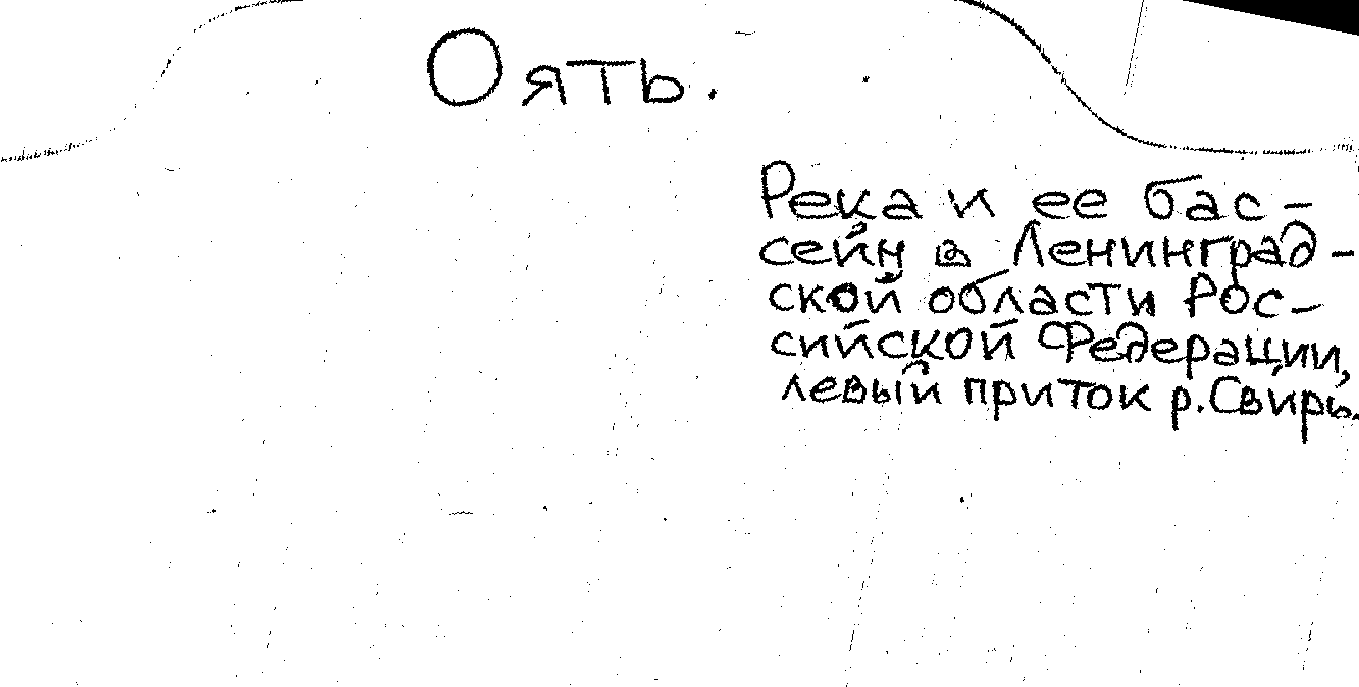 Оять.
Река и ее бас-
сейн в Ленинград-
ской области Рос-
сийской Федерации,
левый приток р. Свирь.